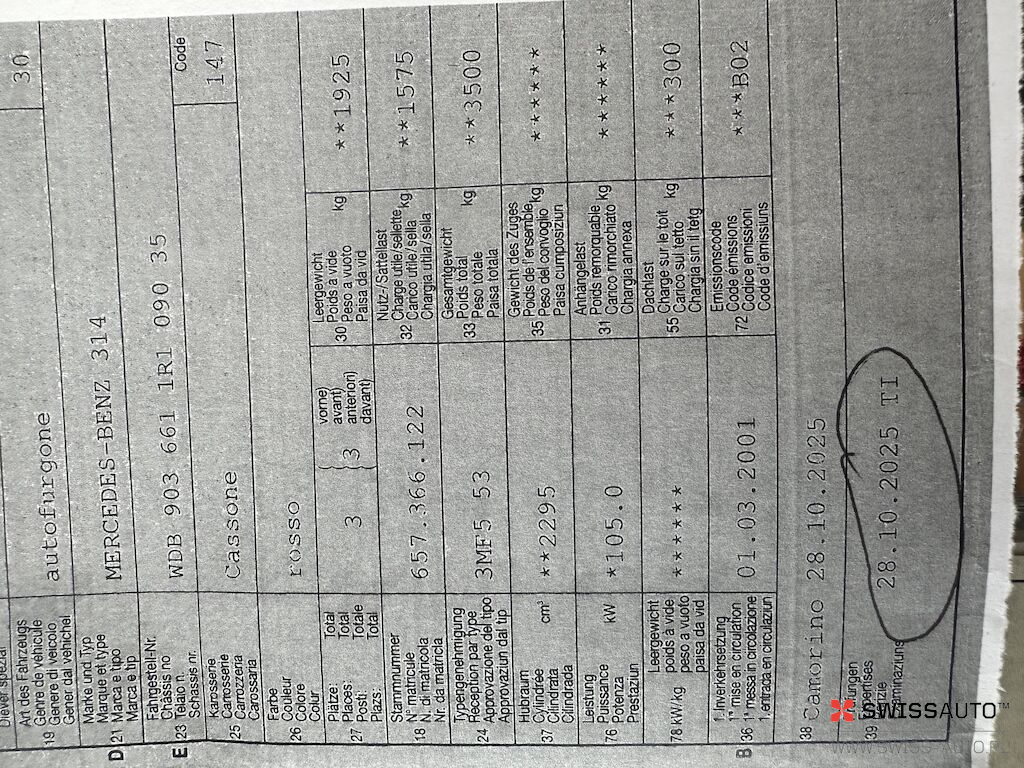 30
Art des Fahrzeugs
Genre de véhicule
19 Genere di veicolo
Gener dal vehichel
autofurgone
Marke und Typ
Marque et type
D 21 Marca e tipo
Marca e tip
MERCEDES-BENZ 314
Fahrgestell-Nr.
Châssis no
E 23 Telaio n.
Schassis nr.
WDB 903 661 1R1 090 35
Code
147
Karosserie
Carrosserie
25 Carrozzeria
Carossaria
Cassone
Farbe
Couleur
26 Colore
Colur
rosso
Plätze: Total
Places: Total
27 Posti: Totale
Plazs: Total
3
3
vorne)
avant)
anteriori)
davant)
Leergewicht
30 Poids à vide kg
Peso a vuoto
Paisa da vid
**1925
Stammnummer
N° matricule
18 N. di matricola
Nr. da matricla
657.366.122
Nutz-/Sattellast
Charge utile/sellette
32 Carico utile/sella kg
Chargia utila/sella
**1575
Typengenehmigung
Réception par type
24 Approvazione del tipo
Approvaziun dal tip
3MF5 53
Gesamtgewicht
33 Poids total kg
Peso totale
Paisa totala
**3500
Hubraum
Cylindrée
37 Cilindrata cm³
Cilindrada
**2295
Gewicht des Zuges
Poids de l'ensemble
35 Peso del convoglio kg
Paisa cumposiziun
******
Leistung
Puissance
76 Potenza kW
Prestaziun
*105.0
Anhängelast
Poids remorquable
31 Carico rimorchiato kg
Chargia annexa
******
Leergewicht
78 kW/kg poids à vide
peso a vuoto
paisa da vid
*******
Dachlast
55 Charge sur le toit kg
Carico sul tetto
Chargia sin il tetg
***300
1. Inverkehrsetzung
1re mise en circulation
B 36 1a messa in circolazione
1. entrada en circulaziun
01.03.2001
Emissionscode
72 Code émissions
Codice emissioni
Code d'emissiuns
***B02
38 Camorino 28.10.2025
39
28.10.2025 TI
SWISSAUTO™
WWW.SWISS-AUTO.RU